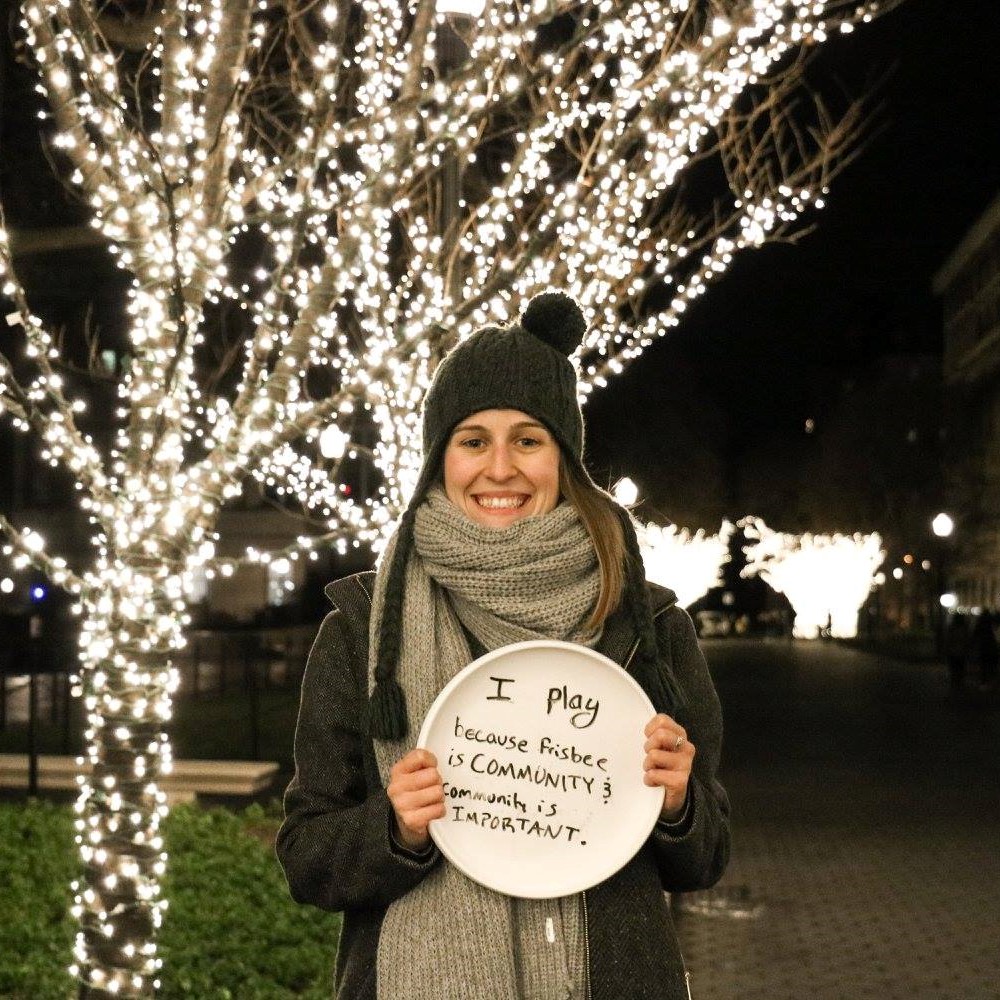 I play
because frisbee
is COMMUNITY &
community is
IMPORTANT.